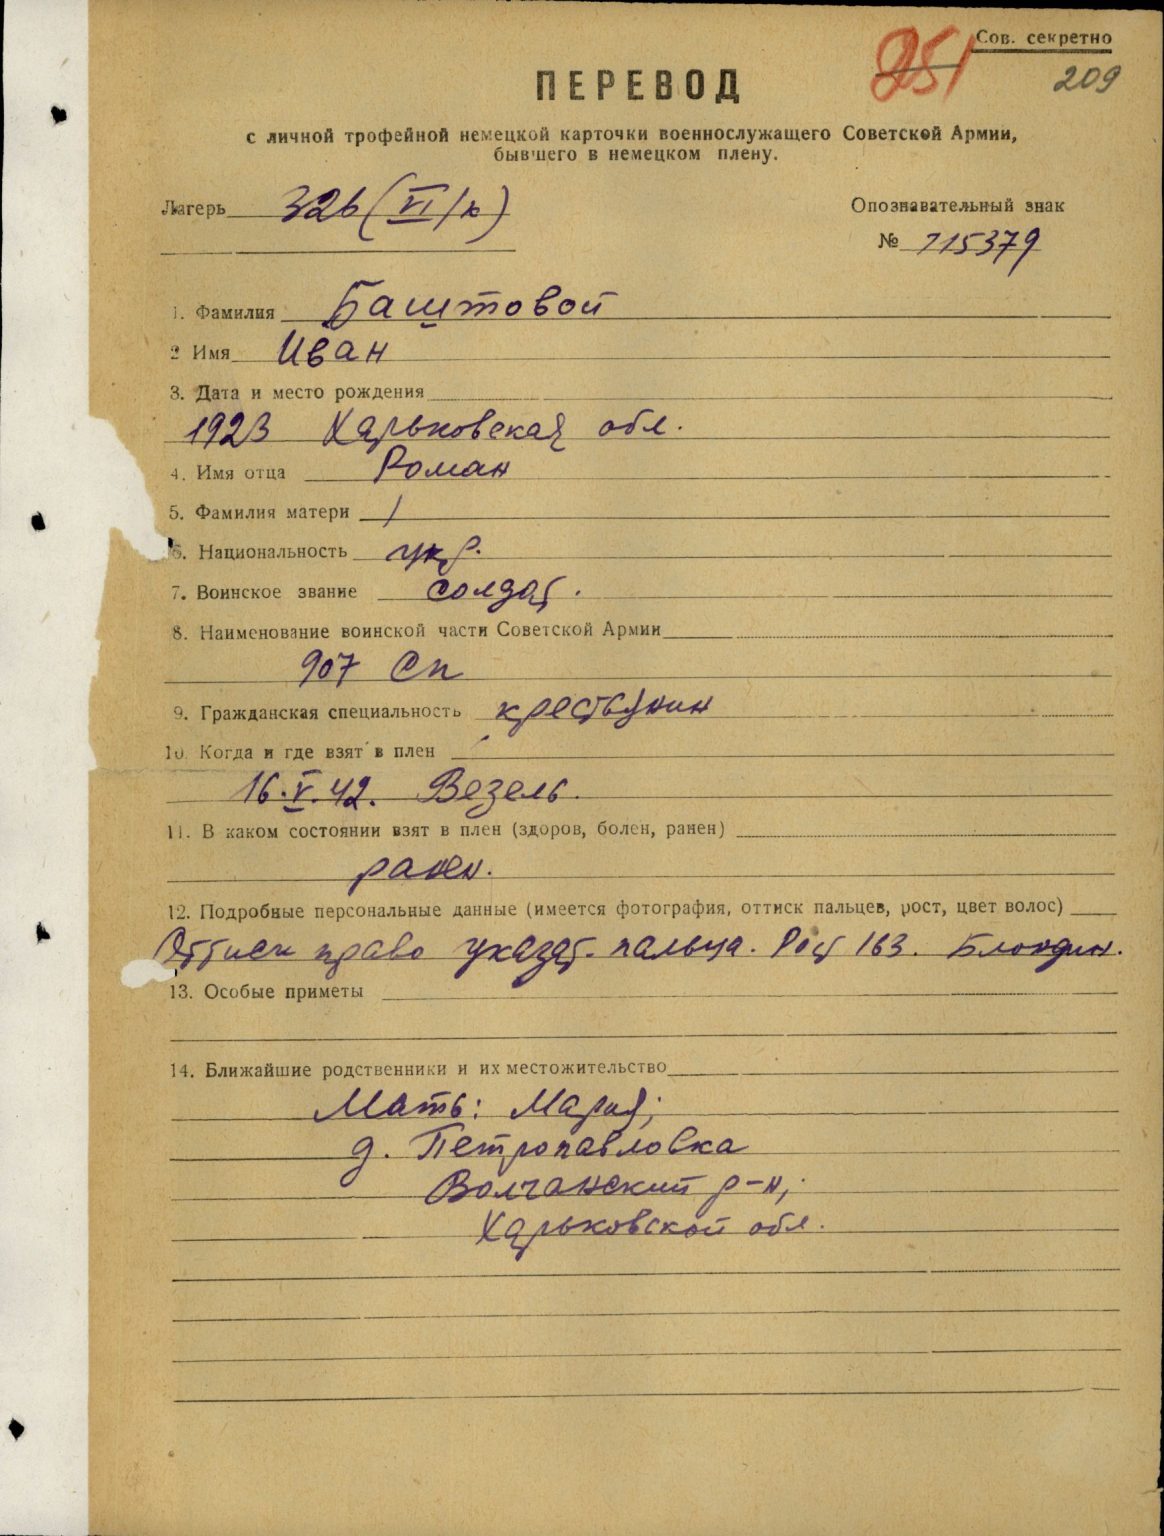 Сов. секретно
251
209
ПЕРЕВОД
с личной трофейной немецкой карточки военнослужащего Советской Армии,
бывшего в немецком плену.
Лагерь 326 (VI/к)
Опознавательный знак
№ 115379
1. Фамилия Баштовой
2 Имя Иван
3. Дата и место рождения
1923 Харьковская обл.
4. Имя отца Роман
5. Фамилия матери /
6. Национальность укр.
7. Воинское звание солдат.
8. Наименование воинской части Советской Армии
907 Сп
9. Гражданская специальность крестьянин
10. Когда и где взят в плен
16.V.42. Везель.
11. В каком состоянии взят в плен (здоров, болен, ранен)
ранен.
12. Подробные персональные данные (имеется фотография, оттиск пальцев, рост, цвет волос)
Оттиск право указат. пальца. Рост 163. Блондин.
13. Особые приметы
14. Ближайшие родственники и их местожительство
Мать: Мария;
д. Петропавловка
Волчанский р-н,
Харьковской обл.